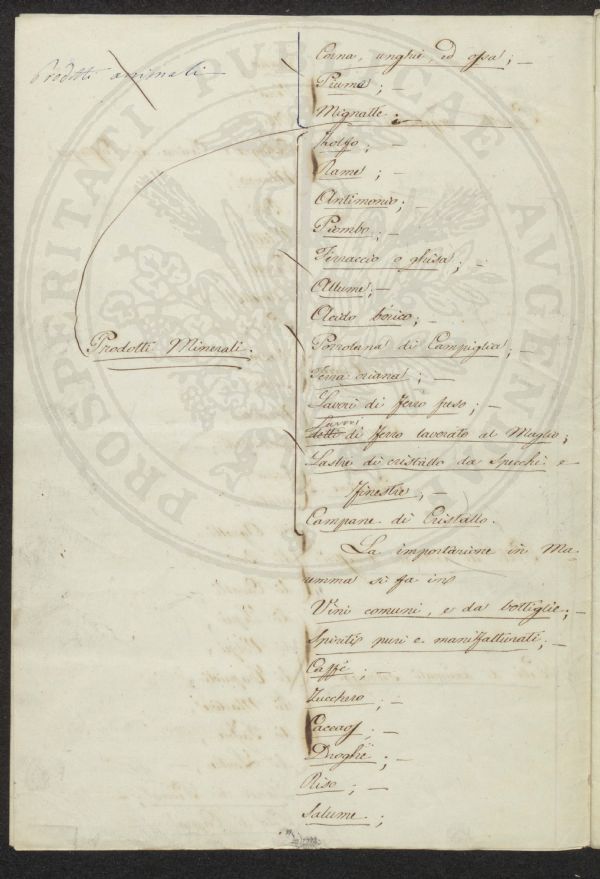 Prodotti animali
Corna, unghie, ed ossa; —
Piume; —
Mignatte; —
Prodotti Minerali;
Zolfo; —
Rame; —
Antimonio; —
Piombo; —
Ferraccio o ghisa; —
Allume; —
Acido borico; —
Porzolana di Campiglia; —
Terra oriana; —
Lavori di ferro fuso; —
Lavori
detto di ferro lavorato al Maglio;
Lastre di cristallo da specchi e
finestre; —
Campane di Cristallo.
La importazione in Ma-
remma si fa in
Vini comuni, e da bottiglie; —
Spiriti puri e manifatturati; —
Caffé; —
Zucchero; —
Caccao; —
Droghe; —
Riso; —
Salume;
PROSPERITATI PUBLICAE AUGENDAE